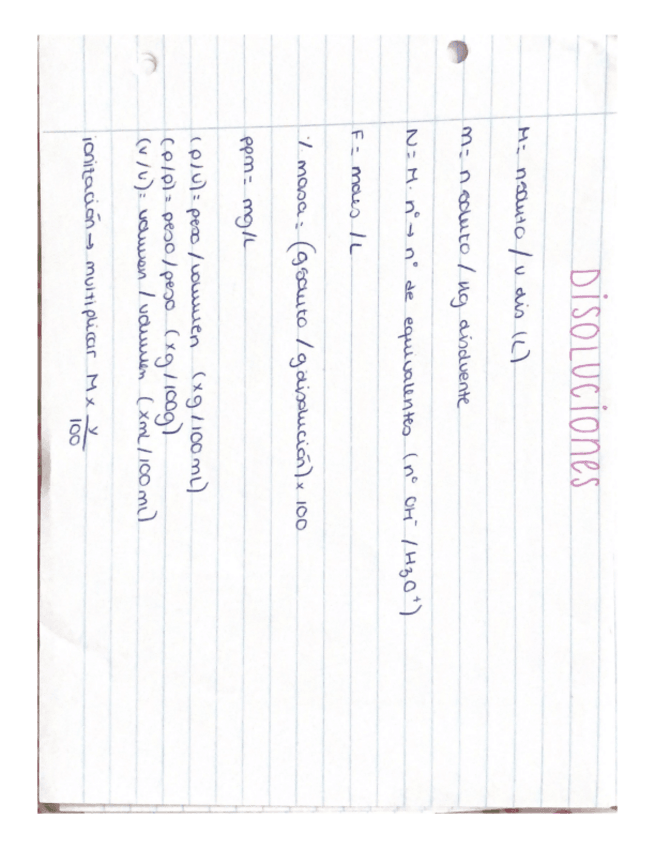 DISOLUCIONES
M = n soluto / v dis (L)
m = n soluto / kg disolvente
N = M · nº → nº de equivalentes (nº OH⁻ / H₃O⁺)
F = moles / L
% masa = (g soluto / g disolución) x 100
ppm = mg/L
(p/v) = peso / volumen (xg / 100 mL)
(p/p) = peso / peso (xg / 100g)
(v/v) = volumen / volumen (xmL / 100 mL)
ionización → multiplicar M x y/100